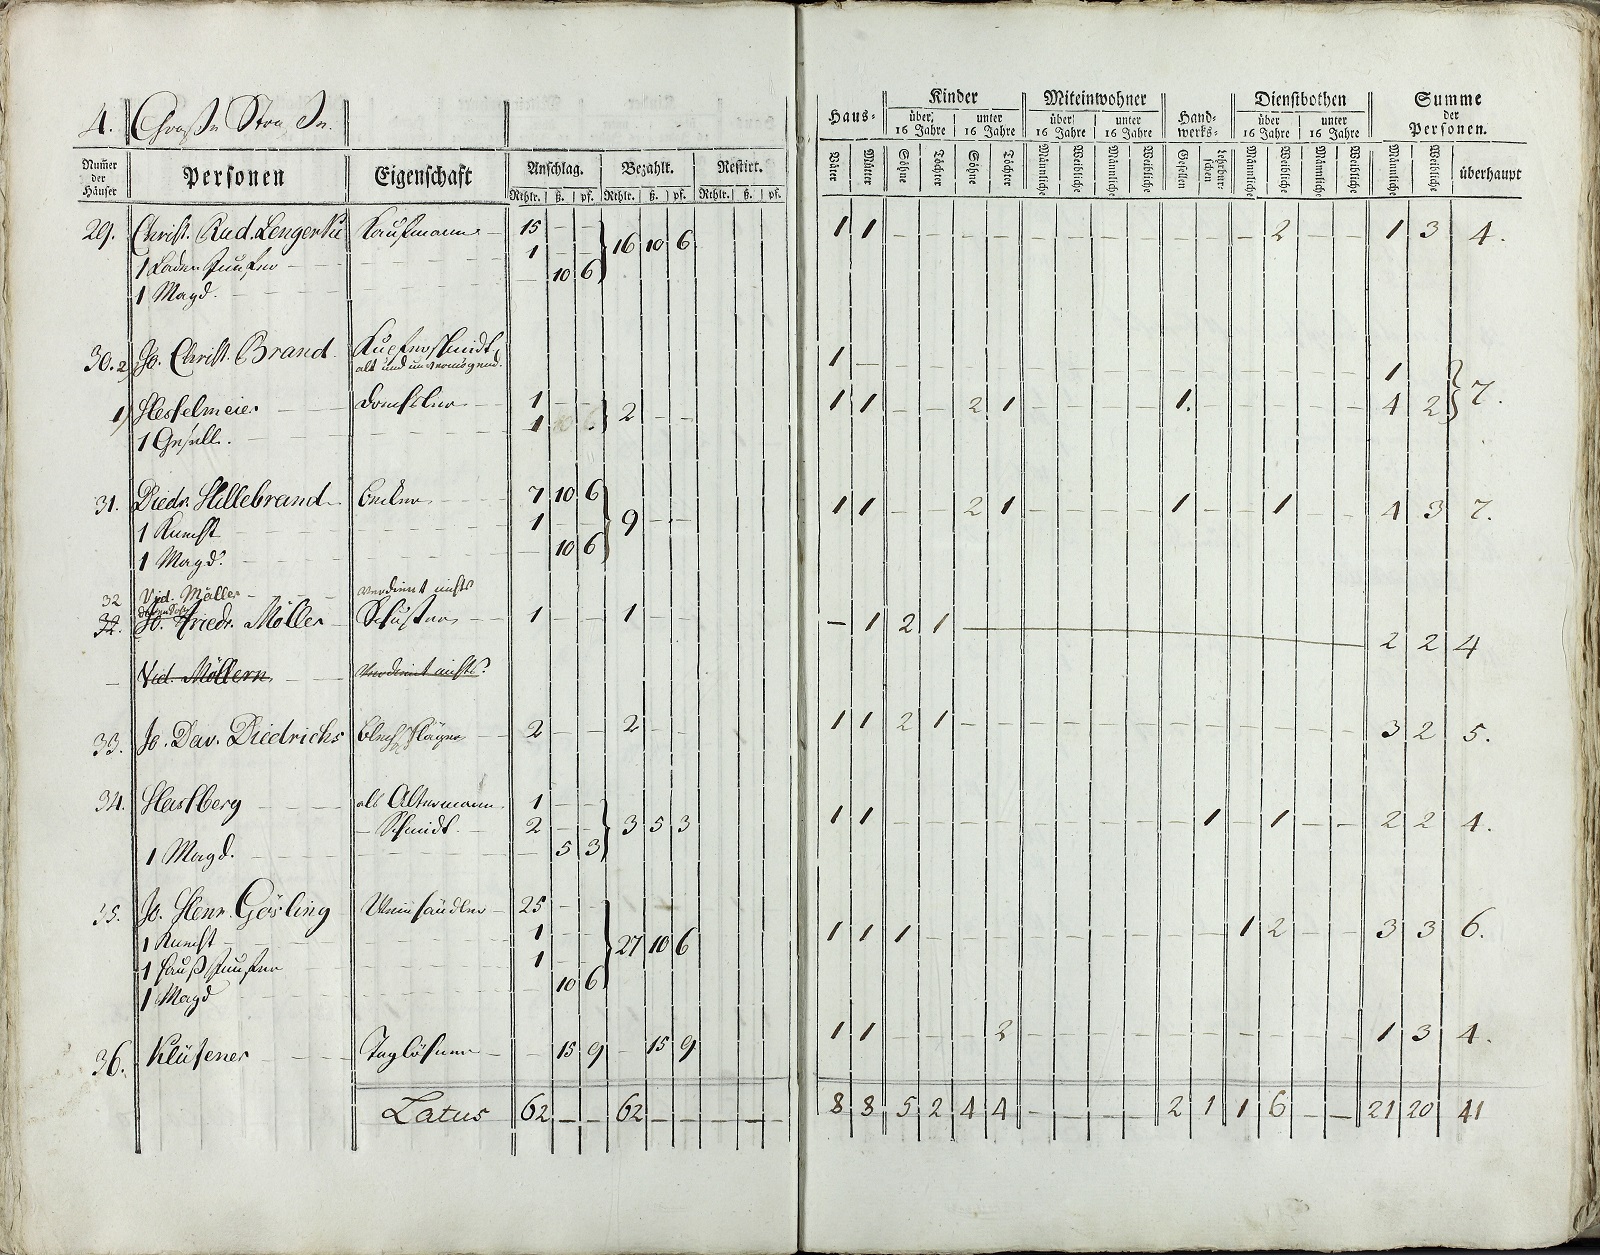 4. Große Straße.
Num̃er der Häuser | Personen | Eigenschaft | Anschlag. Rthlr. ß. pf. | Bezahlt. Rthlr. ß. pf. | Restirt. Rthlr. ß. pf.
Haus- Väter Mütter | Kinder über 16 Jahre Söhne Töchter unter 16 Jahre Söhne Töchter | Miteinwohner über 16 Jahre Männliche Weibliche unter 16 Jahre Männliche Weibliche | Handwerks- Gesellen Lehrburschen | Dienstbothen über 16 Jahre Männliche Weibliche unter 16 Jahre Männliche Weibliche | Summe der Personen. Männliche Weibliche überhaupt
29. Christ. Rud. Lengerke Kaufmann 15 – – 16 10 6 1 1 2 1 3 4.
1 Ladenjunfer 1 – –
1 Magd. – 10 6
30. 2) Jo. Christ. Brand Kupferschmidt 1 – 1
alt und unvermögend.
1) Hesselmeier Drechsler 1 – – 2 – – 1 1 2 1 1. 4 2 7.
1 Gesell. 1
31. Diedr. Hillebrand Becker 7 10 6 9 – – 1 1 2 1 1 1 4 3 7.
1 Knecht 1 – –
1 Magd. – 10 6
32 Vid. Möller verdient nichts
deren Sohn
32. Jo. Friedr. Möller Schuster 1 – – 1 – – – 1 2 1 2 2 4
– Vid. Möllern verdient nichts.
33. Jo. Dav. Diedrichs Blechschläger 2 – – 2 – – 1 1 2 1 3 2 5.
34. Hasberg als Altermann 1 – –
– Schmidt. 2 – – 3 5 3 1 1 1 1 2 2 4.
1 Magd. – 5 3
35. Jo. Henr. Gösling Weinhändler 25 – –
1 Knecht 1 – – 27 10 6 1 1 1 1 2 3 3 6.
1 Haußjunfer 1 – –
1 Magd – 10 6
36. Klüsener Taglöhner – 15 9 – 15 9 1 1 2 1 3 4.
Latus 62 – – 62 – – – – – 8 8 5 2 4 4 – – – – 2 1 1 6 – – 21 20 41